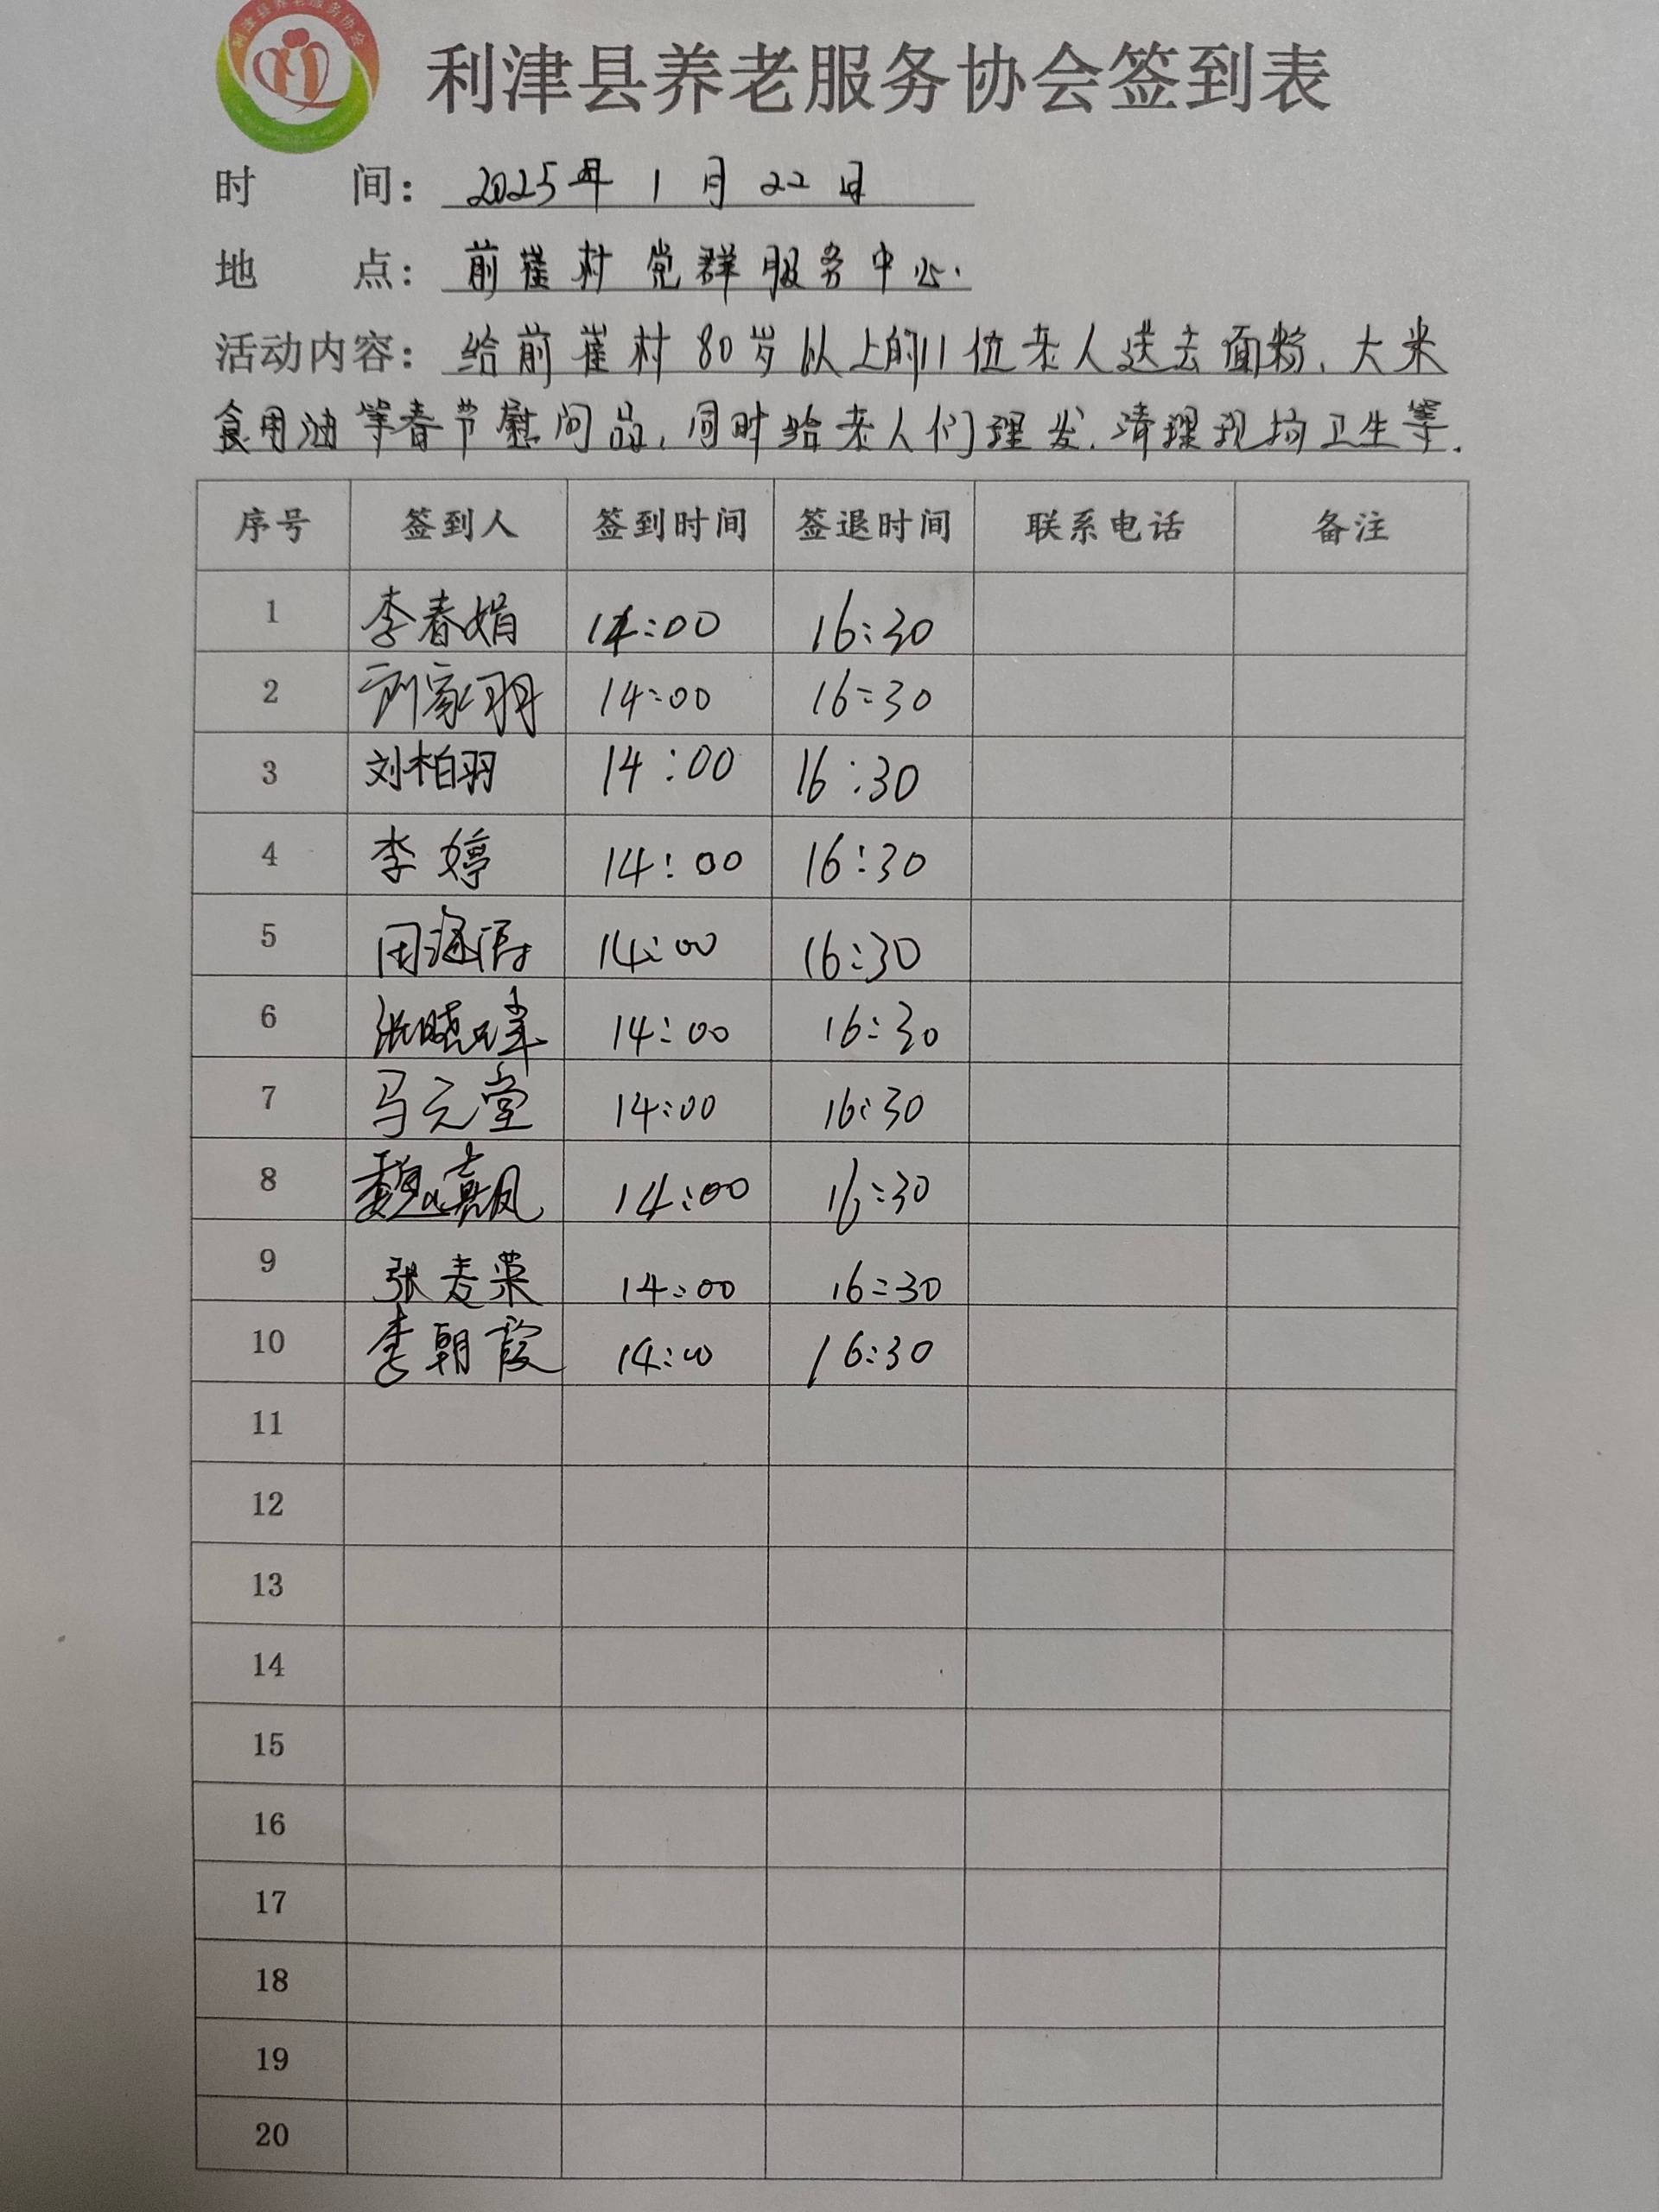 利津县养老服务协会
利津县养老服务协会签到表
时 间: 2025年 1 月 22 日
地 点: 前崔村党群服务中心.
活动内容: 给前崔村80岁以上的11位老人送去面粉、大米
食用油等春节慰问品,同时给老人们理发.清理现场卫生等.
序号 签到人 签到时间 签退时间 联系电话 备注
1 李春娟 14:00 16:30
2 刘家羽 14:00 16:30
3 刘柏羽 14:00 16:30
4 李婷 14:00 16:30
5 14:00 16:30
6 张晓 14:00 16:30
7 马元堂 14:00 16:30
8 魏 凤 14:00 16:30
9 张 荣 14:00 16:30
10 李朝霞 14:00 16:30
11
12
13
14
15
16
17
18
19
20